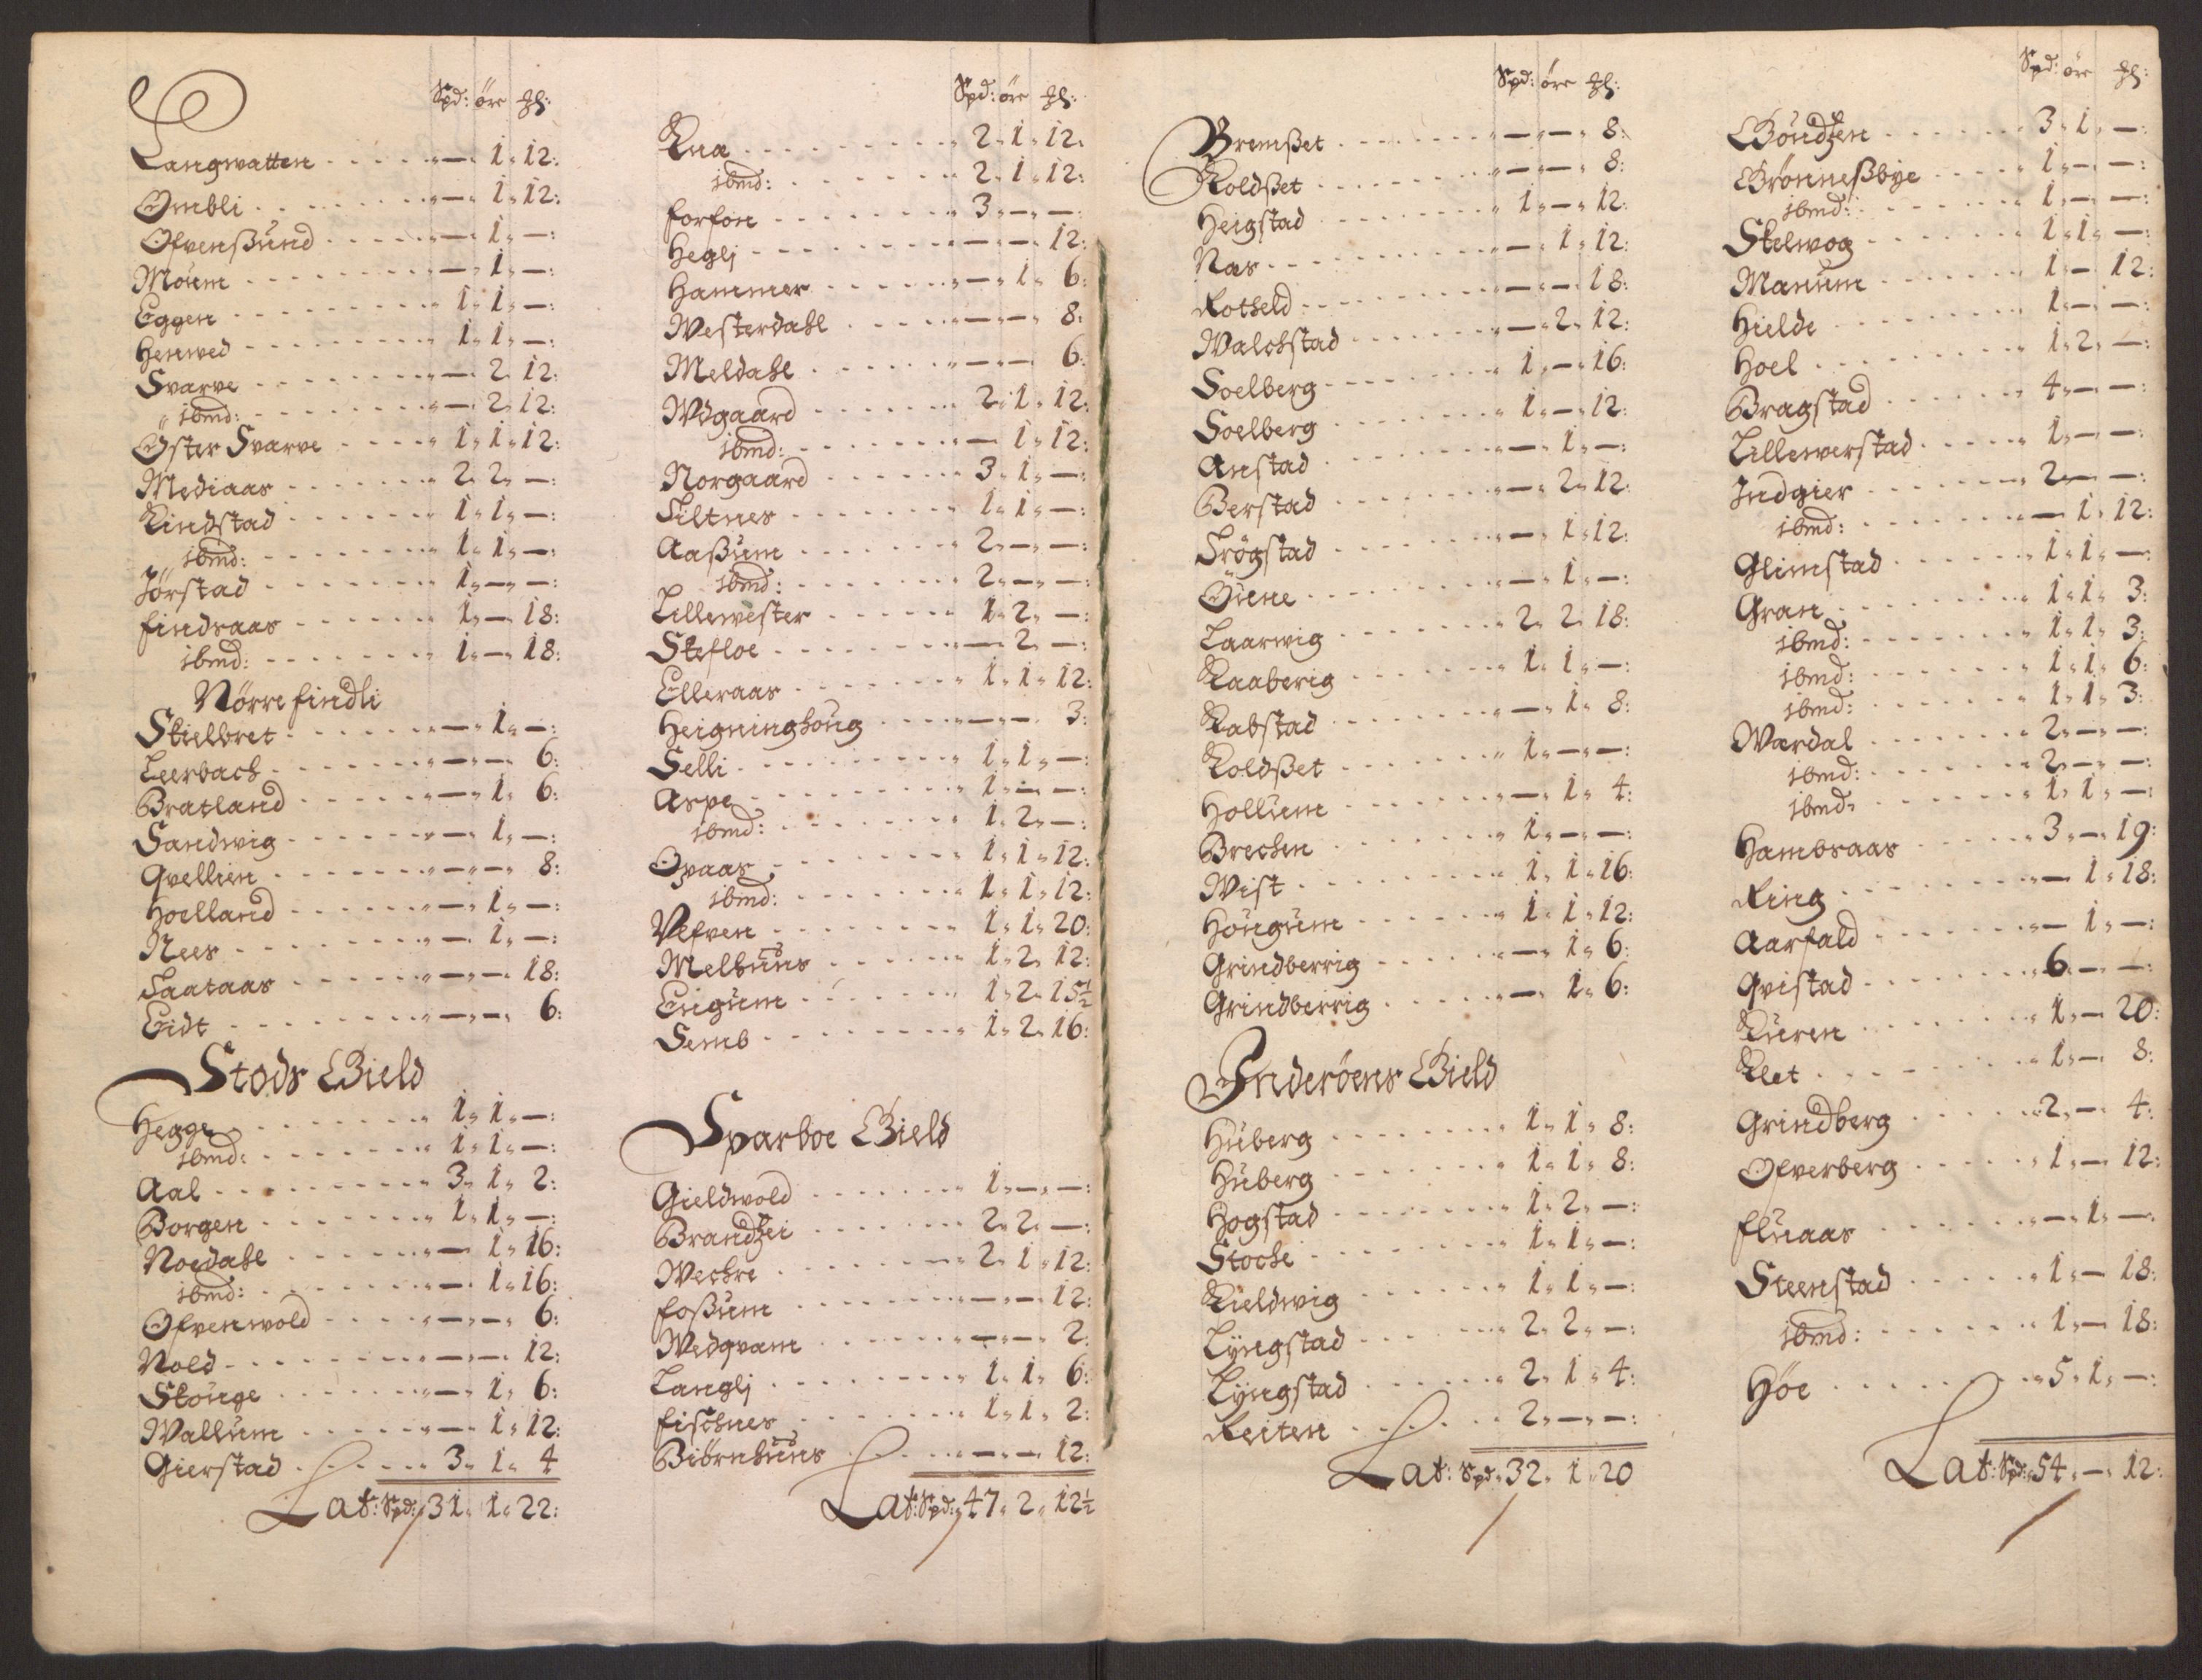 Spd: öre ₰:
Langwatten - - - - - „ — „ 1 „ 12:
Ombli - - - - - „ — „ 1 „ 12:
Ofvenßund - - - - - „ — „ 1 „ —:
Moum - - - - - „ — „ 1 „ —:
Eggen - - - - - „ 1 „ 1 „ —:
Henwed - - - - - „ 1 „ 1 „ —:
Svarve - - - - - „ — „ 2 „ 12:
ibmd: - - - - - „ — „ 2 „ 12:
Øster Svarve - - - - - „ 1 „ 1 „ 12:
Mediaas - - - - - „ 2 „ 2 „ —:
Kindstad - - - - - „ 1 „ 1 „ —:
ibmd: - - - - - „ 1 „ 1 „ —:
Jörstad - - - - - „ 1 „ — „ —:
Findsaas - - - - - „ 1 „ — „ 18:
ibmd: - - - - - „ 1 „ — „ 18:
Nörre findli
Skielbret - - - - - „ — „ 1 „ —:
Leerbach - - - - - „ — „ — „ 6:
Bratland - - - - - „ — „ 1 „ 6:
Sandwig - - - - - „ — „ 1 „ —:
Qvellien - - - - - „ — „ — „ 8:
Hoelland - - - - - „ — „ 1 „ —:
Nees - - - - - „ — „ 1 „ —:
Saataas - - - - - „ — „ — „ 18:
Eidt - - - - - „ — „ — „ 6:
Stods Gield
Hegge - - - - - „ 1 „ 1 „ —:
ibmd: - - - - - „ 1 „ 1 „ —:
Aal - - - - - „ 3 „ 1 „ 2:
Borgen - - - - - „ 1 „ 1 „ —:
Noedahl - - - - - „ — „ 1 „ 16:
ibmd: - - - - - „ — „ 1 „ 16:
Ofvenwold - - - - - „ — „ — „ 6:
Nold - - - - - „ — „ — „ 12:
Skouge - - - - - „ — „ 1 „ 6:
Wallum - - - - - „ — „ 1 „ 12:
Gierstad - - - - - „ 3 „ 1 „ 4
Lat: Spd: 31 „ 1 „ 22:
Spd: öre ₰:
Kna - - - - - „ 2 „ 1 „ 12:
ibmd: - - - - - „ 2 „ 1 „ 12:
Forfon - - - - - „ 3 „ — „ —:
Heglj - - - - - „ — „ — „ 12:
Hammer - - - - - „ — „ 1 „ 6:
Westerdahl - - - - - „ — „ — „ 8:
Meldahl - - - - - „ — „ — „ 6:
Wdgaard - - - - - „ 2 „ 1 „ 12:
ibmd: - - - - - „ — „ 1 „ 12:
Norgaard - - - - - „ 3 „ 1 „ —:
Siltnes - - - - - „ 1 „ 1 „ —:
Aaßum - - - - - „ 2 „ — „ —:
ibmd: - - - - - „ 2 „ — „ —:
Lillewester - - - - - „ 1 „ 2 „ —:
Skefloe - - - - - „ — „ 2 „ —:
Elleraas - - - - - „ 1 „ 1 „ 12:
Heigninghoug - - - - - „ — „ — „ 3:
Selli - - - - - „ 1 „ 1 „ —:
Aspe - - - - - „ 1 „ — „ —:
ibmd: - - - - - „ 1 „ 2 „ —:
Opaas - - - - - „ 1 „ 1 „ 12:
ibmd: - - - - - „ 1 „ 1 „ 12:
Velven - - - - - „ 1 „ 1 „ 20:
Melhuus - - - - - „ 1 „ 2 „ 12:
Enigum - - - - - „ 1 „ 2 „ 15½
Semb - - - - - „ 1 „ 2 „ 16:
Sparboe Gield
Gieldwold - - - - - „ 1 „ — „ —:
Brandzei - - - - - „ 2 „ 2 „ —:
Wechre - - - - - „ 2 „ 1 „ 12:
Foßum - - - - - „ — „ — „ 12:
Wedqvam - - - - - „ — „ — „ 2:
Langlj - - - - - „ 1 „ 1 „ 6:
Fischnes - - - - - „ 1 „ 1 „ 2:
Biörnhuus - - - - - „ — „ — „ 12:
Lat: Spd: 47 „ 2 „ 12½
Spd: öre ₰:
Bremßet - - - - - „ — „ — „ 8:
Koldßet - - - - - „ — „ — „ 8:
Heigstad - - - - - „ 1 „ — „ 12:
Nas - - - - - „ — „ 1 „ 12:
Rotheld - - - - - „ — „ — „ 18:
Walchstad - - - - - „ — „ 2 „ 12:
Soelberg - - - - - „ 1 „ — „ 16:
Soelberg - - - - - „ 1 „ — „ 12:
Anstad - - - - - „ — „ 1 „ —:
Berstad - - - - - „ — „ 2 „ 12:
Frögstad - - - - - „ — „ 1 „ 12:
Öune - - - - - „ — „ 1 „ —:
Laarwig - - - - - „ 2 „ 2 „ 18:
Kaaberig - - - - - „ 1 „ 1 „ —:
Kabstad - - - - - „ — „ 1 „ 8:
Koldßet - - - - - „ 1 „ — „ —:
Hollum - - - - - „ — „ 1 „ 4:
Brechen - - - - - „ 1 „ — „ —:
Wist - - - - - „ 1 „ 1 „ 16:
Hougum - - - - - „ 1 „ 1 „ 12:
Grindberrig - - - - - „ — „ 1 „ 6:
Grindberrig - - - - - „ — „ 1 „ 6:
Inderöens Gield
Huberg - - - - - „ 1 „ 1 „ 8:
Huberg - - - - - „ 1 „ 1 „ 8:
Hogstad - - - - - „ 1 „ 2 „ —:
Stoche - - - - - „ 1 „ 1 „ —:
Kieldwig - - - - - „ 1 „ 1 „ —:
Lÿngstad - - - - - „ 2 „ 2 „ —:
Lÿngstad - - - - - „ 2 „ 1 „ 4:
Reiten - - - - - „ 2 „ — „ —:
Lat: Spd: 32 „ 1 „ 20
Spd: öre ₰:
Göndzen - - - - - „ 3 „ 1 „ —:
Grönneßbye - - - - - „ 1 „ — „ —:
ibmd: - - - - - „ 1 „ — „ —:
Skelwog - - - - - „ 1 „ 1 „ —:
Manum - - - - - „ 1 „ — „ 12:
Hielde - - - - - „ 1 „ — „ —:
Hoel - - - - - „ 1 „ 2 „ —:
Bragstad - - - - - „ 4 „ — „ —:
Lillewerstad - - - - - „ 1 „ — „ —:
Indgier - - - - - „ 2 „ — „ —:
ibmd: - - - - - „ — „ 1 „ 12:
Glimstad - - - - - „ 1 „ 1 „ —:
Gran - - - - - „ 1 „ 1 „ 3:
ibmd: - - - - - „ 1 „ 1 „ 3:
ibmd: - - - - - „ 1 „ 1 „ 6:
ibmd: - - - - - „ 1 „ 1 „ 3:
Wardal - - - - - „ 2 „ — „ —:
ibmd: - - - - - „ 2 „ — „ —:
ibmd: - - - - - „ 1 „ 1 „ —:
Hambraas - - - - - „ 3 „ — „ 19:
Ring - - - - - „ — „ 1 „ 18:
Aarfald - - - - - „ — „ 1 „ —:
Qvistad - - - - - „ 6 „ — „ —:
Kuren - - - - - „ 1 „ — „ 20:
Klet - - - - - „ 1 „ — „ 8:
Grindberg - - - - - „ 2 „ — „ 4:
Ofverberg - - - - - „ 1 „ — „ 12:
Fluaas - - - - - „ — „ 1 „ —:
Steenstad - - - - - „ 1 „ — „ 18:
ibmd: - - - - - „ 1 „ — „ 18:
Höe - - - - - „ 5 „ 1 „ —:
Lat: Spd: 54 „ — „ 12: